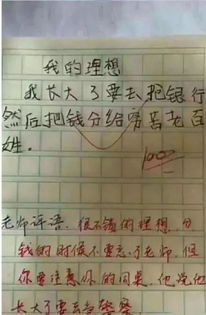 我的理想
我长大了要去把银行
然后把钱分给穷苦老百
姓。
100
老师评语:很不错的理想,分
钱的时候不要忘了老师,但
你要注意你的同桌,他说他
长大了要去当警察